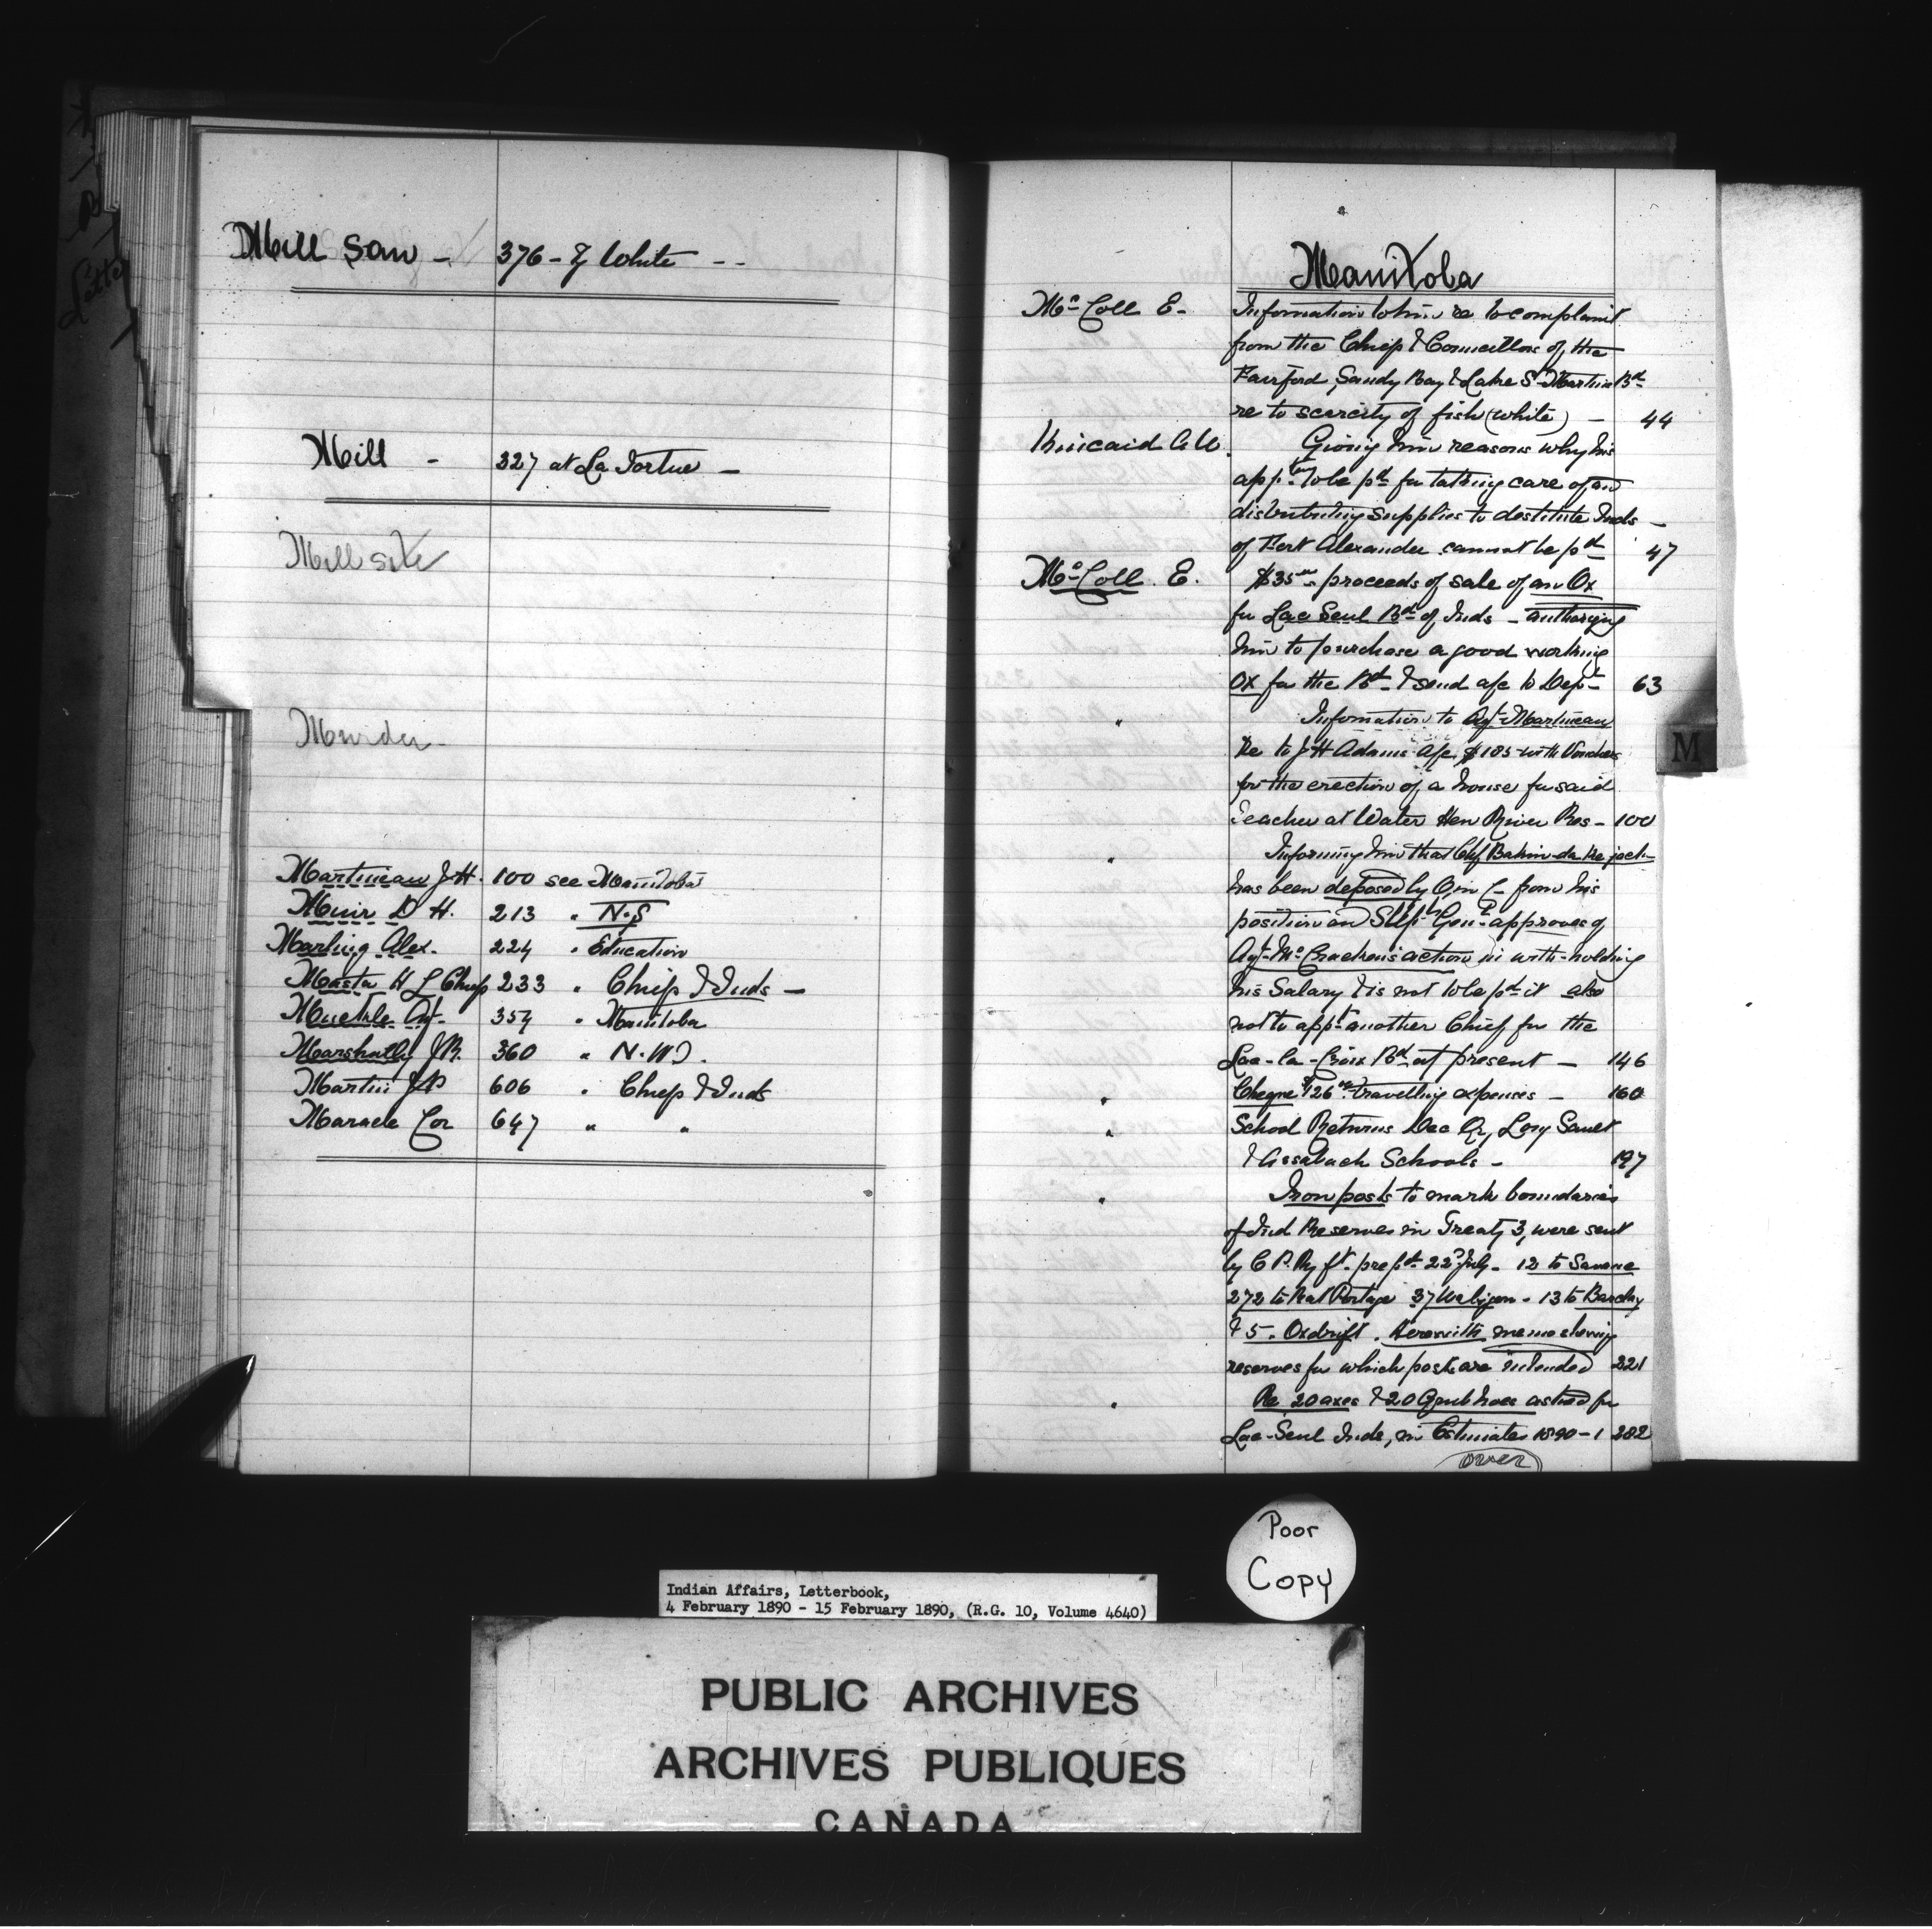 Mill Saw - 376 - White - -
Mill - 327 at La Tortue -
Mill site
Murder -
Martineau J H. 100 see Manitoba
Muir D H. 213 " N.S
Marling Alex. 224 " Education
Masta H L Chief 233 " Chief & Inds -
Muckle Agt. 354 " Manitoba
Marshally J B. 360 " N.W.T.
Martin J P 606 " Chief & Inds
Maracle Cor 647 " "
Manitoba
McColl E. - Information to him re to complaint
from the Chief & Councillors of the
Fairford, Sandy Bay & Lake St Martin Bd
re to scarcity of fish (white) - 44
Kincaid Giving him reasons why his
app. to be pd for taking care of and
distributing supplies to destitute Inds -
of Fort Alexander cannot be pd 47
McColl. E. $35 proceeds of sale of an Ox
for Lac Seul Bd of Inds - authorizing
him to purchase a good working
Ox for the Bd & send a/c to Dept 63
" Information to Agt Martineau
Re to J H Adams a/c $185 with Vouchers
for the erection of a house for said
Teacher at Water Hen River Res - 100
" Informing him that Chf
has been deposed by O in C from his
position and Supt Genl approves of
Agt McCracken's action in with-holding
his Salary & is not to be pd it also
not to appt another Chief for the
Lac-la-Croix Bd at present - 146
" Cheque $126 travelling expenses - 160
" School Returns Dec Qr, Long Sault
& Assabach Schools - 197
" Iron posts to mark boundaries
of Ind Reserves in Treaty 3, were sent
by C P. Ry ft. prepd 22 July - 12 to Savane
272 to Rat Portage 37 Wabigon - 13 to Barclay
& 5. Oxdrift. Herewith memo showing
reserves for which posts are intended 221
" Re 20 axes & 20 Grub hoes asked for
Lac-Seul Inds, in Estimates 1890-1 282
over
M
Poor
Copy
Indian Affairs, Letterbook,
4 February 1890 - 15 February 1890, (R.G. 10, Volume 4640)
PUBLIC ARCHIVES
ARCHIVES PUBLIQUES
CANADA